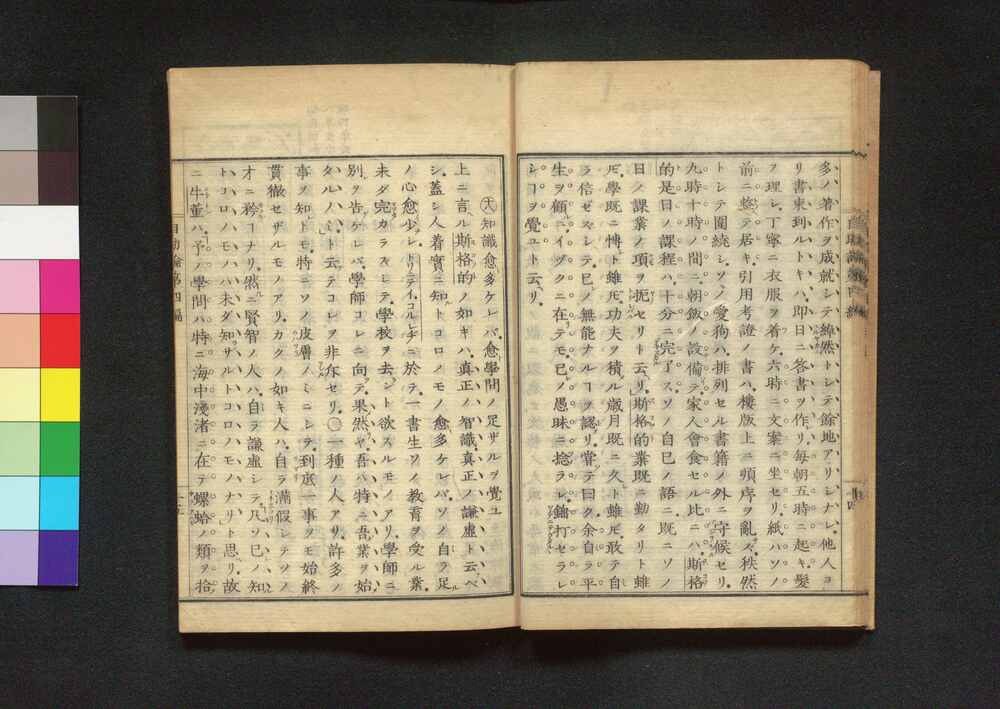 多ハ著作ヲ成就シテ綽然トシテ餘地アリシナレ他人ヨ
リ書柬到ルトキハ即日ニ答書ヲ作リ毎朝五時ニ起キ髮
ヲ理シ丁寧ニ衣服ヲ着ケ六時ニ文案ニ坐セリ紙ハソノ
前ニ整テ居キ引用考證ノ書ハ樓版上ニ順序ヲ亂ズ秩然
トシテ圍繞シソノ愛狗ハ排列セル書籍ノ外ニ守候セリ
九時十時ノ間ニ朝飯ノ設備テ家人會食セル比ニハ斯格
的是日ノ課程ハ十分ニ完了スソノ自己ノ語ニ既ニソノ
日ノ課業ノ項ヲ扼セリト云リ斯格的業既ニ勤タリト雖
𪜈學既ニ博ト雖𪜈功夫ヲ積ル歳月既ニ久ト雖𪜈敢テ自
ラ倍ゼズシテ己ノ無能ナルヿヲ認リ嘗テ曰ク余自ラ平
生ヲ顧ニイヅクニ在テモ己ノ愚昧ニ捻ラレ鏀打セラレ
シヿヲ覺ユト云リ
知識愈多ケレバ愈學問ノ足ザルヲ覺ユ
上ニ言ル斯格的ノ如キハ真正ノ智識真正ノ謙虚ト云ベ
シ蓋シ人着實ニ知トコロノモノ愈多ケレバソノ自ラ足
ノ心愈少シトリニテイコルレヂニ於テ一書生ソノ教育ヲ受シ業
未ダ完カラズシテ學校ヲ去ント欲スルモノアリ學師ニ
別ヲ告ケレバ學師コレニ向テ果然ヤ吾ハ特ニ吾業ヲ始
タルノミト云テコレヲ非斥セリ〇一種ノ人アリ許多ノ
事ヲ知トモ特ニソノ皮膚ノミニシテ到底一事ヲモ始終
貫徹セザルモノアリカクノ如キ人ハ自ラ滿假シテソノ
才ニ矜ヿナリ然ニ賢智ノ人ハ自ラ謙虚シテ凡ソ己ノ知
トコロノモノハ未ダ知ザルトコロハモノナリト思リ故
ニ牛董ハ予ノ學問ハ特ニ海中淺渚ニ在テ螺蛤ノ類ヲ拾
自助論第四編